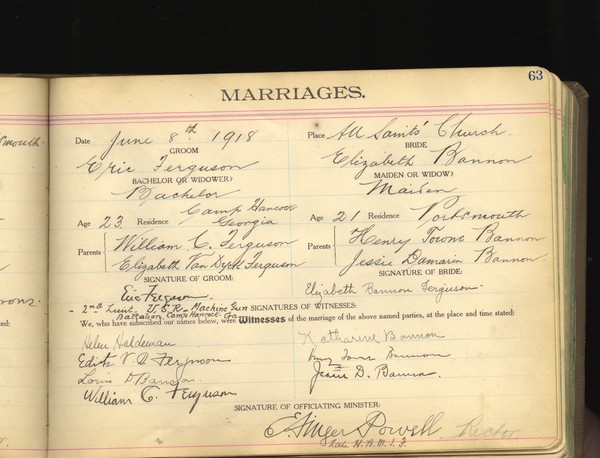 63
MARRIAGES.
Date June 8th 1918 Place All Saints' Church.
GROOM BRIDE
Eric Ferguson Elizabeth Bannon
BACHELOR OR WIDOWER) MAIDEN OR WIDOW)
Bachelor Maiden
Age 23 Residence Camp Hancock Georgia Age 21 Residence Portsmouth
Parents William C. Ferguson Parents Henry Towne Bannon
Elizabeth Van Dyck Ferguson Jessie Damarin Bannon.
SIGNATURE OF GROOM: SIGNATURE OF BRIDE:
Eric Ferguson Elizabeth Bannon Ferguson
- 2nd Lieut. U.S.R. Machine Gun SIGNATURES OF WITNESSES:
Battalion, Camp Hancock Ga
We, who have subscribed our names below, were Witnesses of the marriage of the above named parties, at the place and time stated:
Helen Haldeman Katharine Bannon
Edith V D Ferguson Henry Towne Bannon
Louis D Bannon. Jessie D. Bannon.
William C. Ferguson
SIGNATURE OF OFFICIATING MINISTER:
Powell Rector